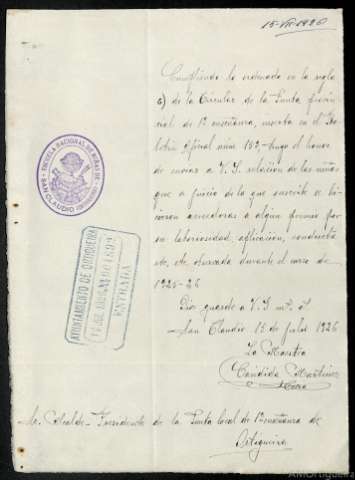 15-VII-1926
Cumpliendo lo ordenado en la regla
c) de la Circular de la Junta provin-
cial de 1ª enseñanza, inserta en el Bo-
letín Oficial núm 152, tengo el honor
de enviar a V. S. relación de las niñas
que a juicio de la que suscribe se hi-
cieron acreedoras a algún premio por
su laboriosidad, aplicación, conducta
etc, etc, observada durante el curso de
1925-26
Dios guarde a V. S. mˢ. aˢ.
San Claudio 15 de Julio 1926
La Maestra
Cándida Martínez
ESCUELA NACIONAL DE NIÑAS DE
SAN CLAUDIO
AYUNTAMIENTO DE ORTIGUEIRA
ENTRADA
Sr. Alcalde-Presidente de la Junta local de 1ª enseñanza de
Ortigueira